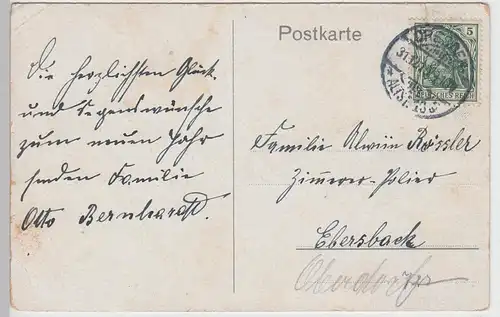 Postkarte
5
DRESDEN
ALTST.
DEUTSCHES REICH
Die herzlichsten Glück
und Segenswünsche
zum neuen Jahr
senden Familie
Otto Bernhardt.
Familie Alwin Rössler
Zimmerer-Polier
Ebersbach
Oberdorf